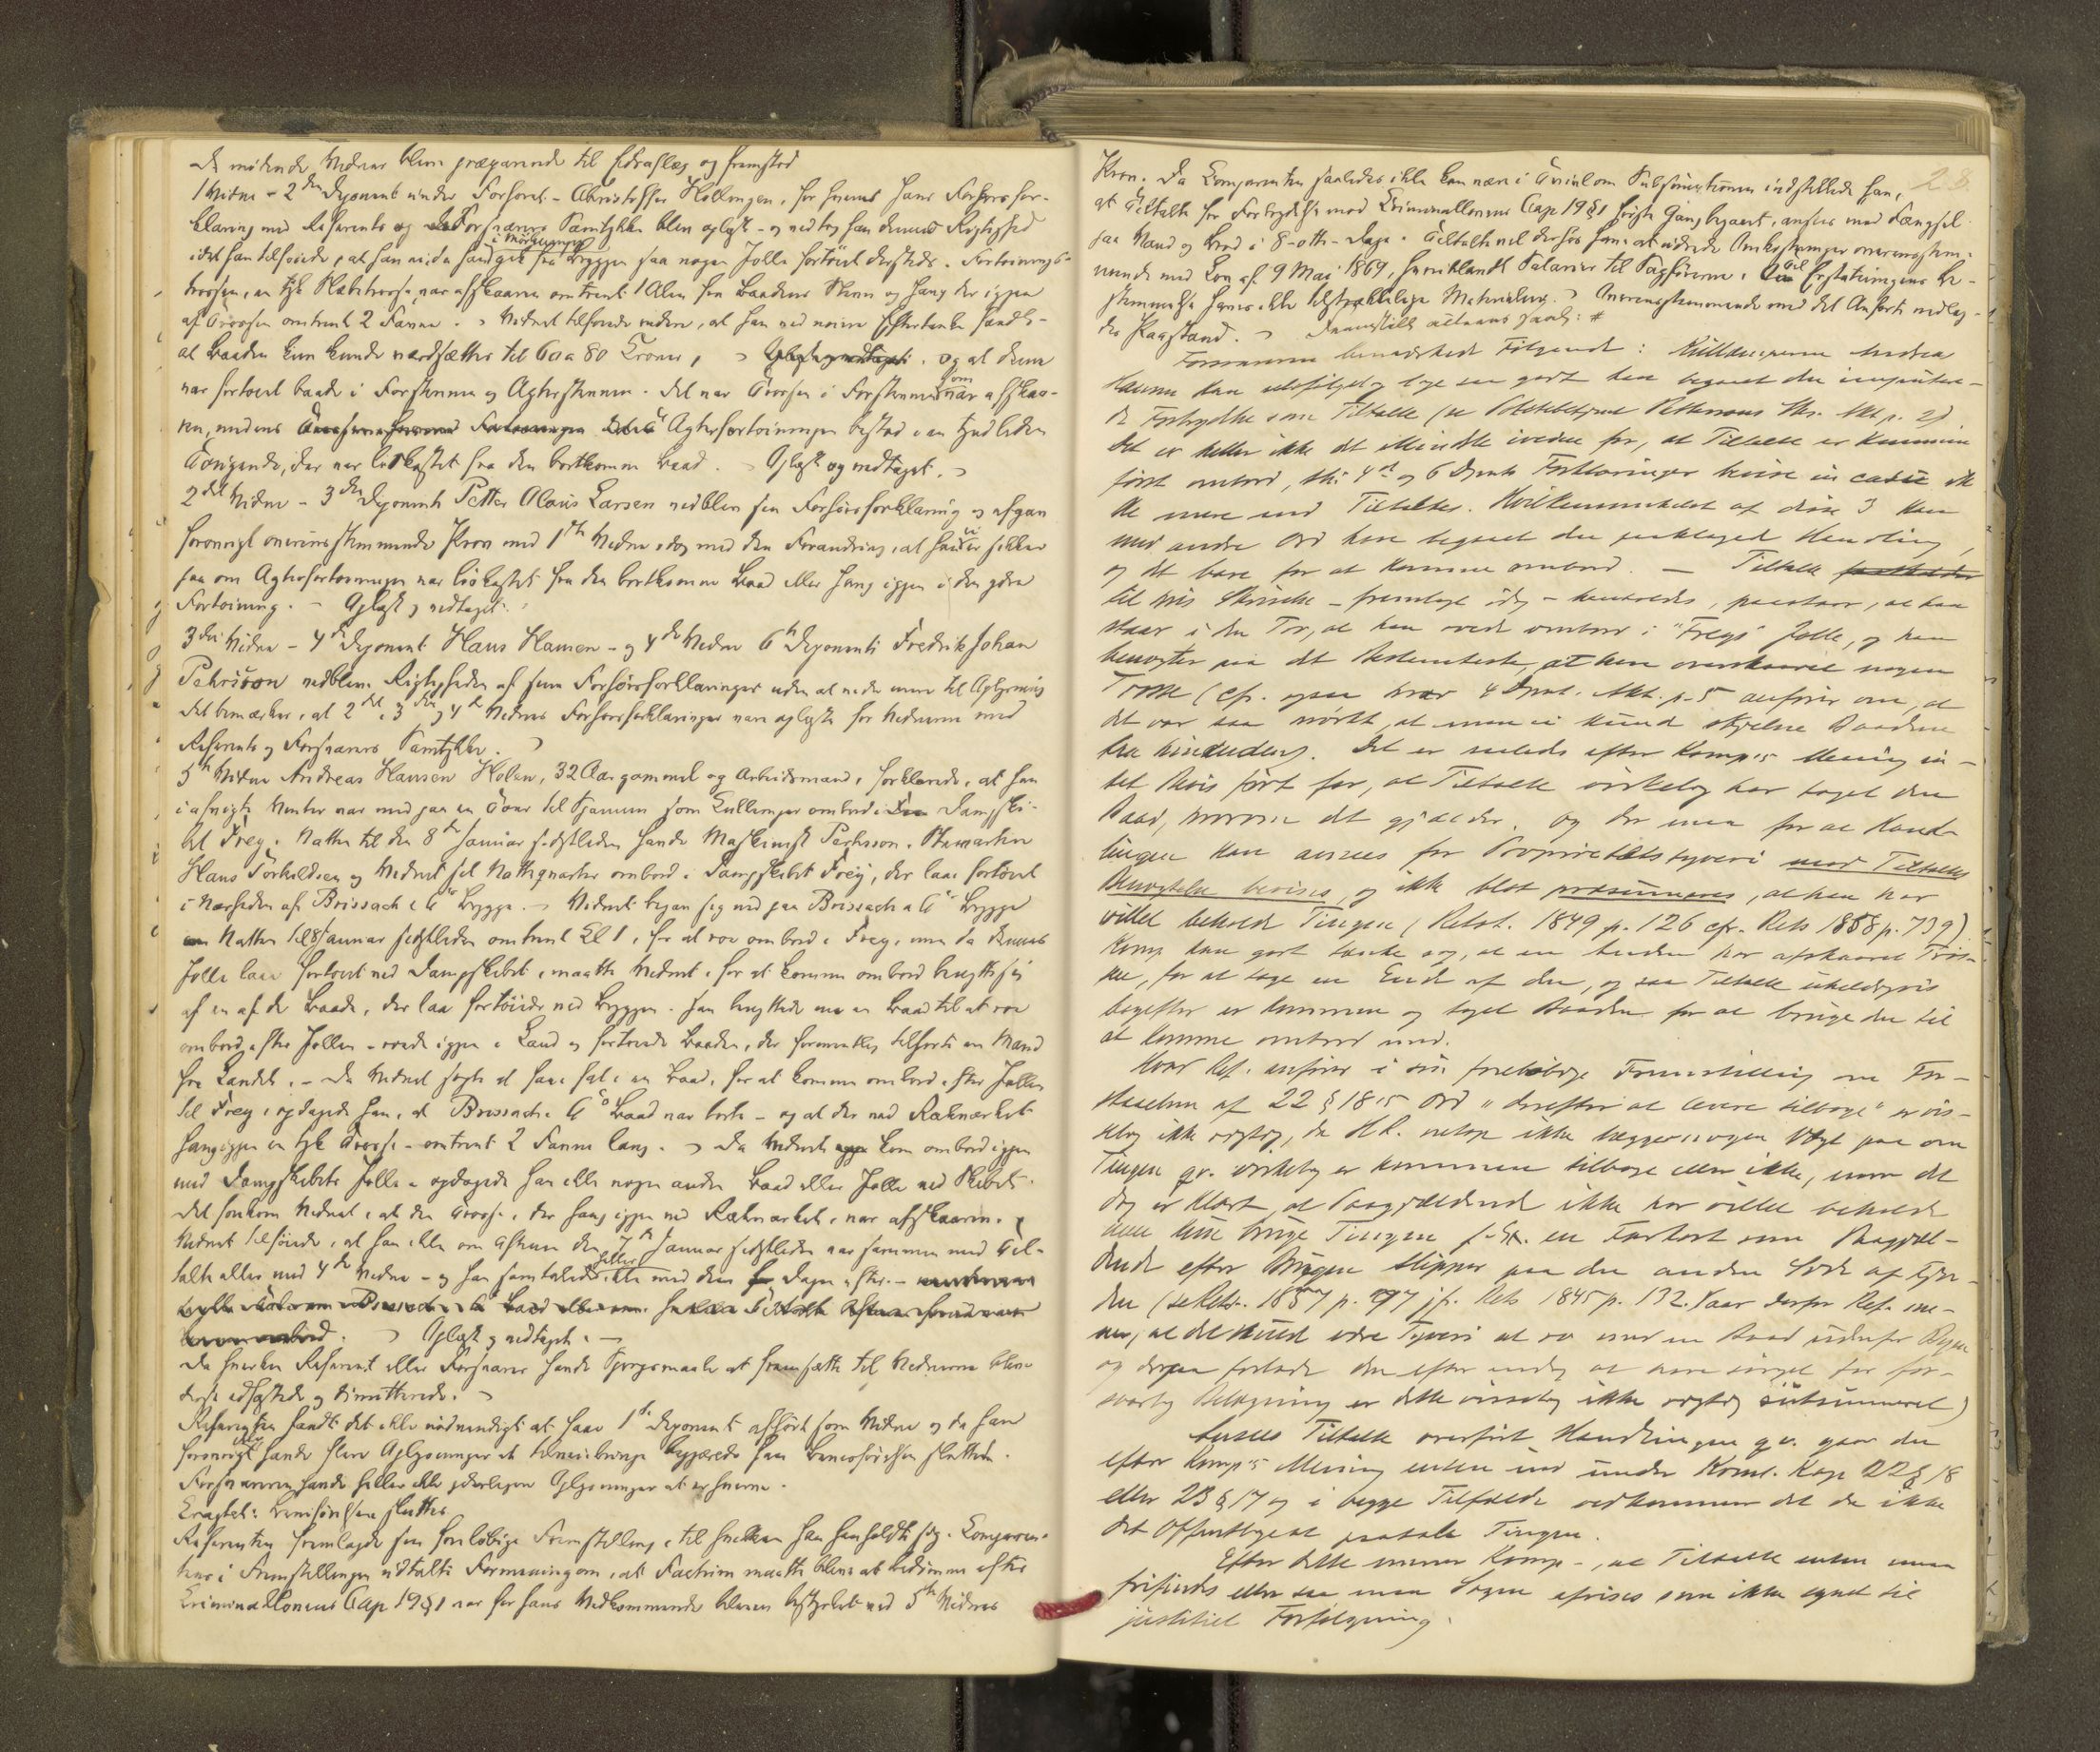 De mødende Vidner bleve præparerede til Edsaflæg og fremstod
1 Vidne – 2den Deponent under Forhøret – Christoffer Hollingen, for hvem hans Forhørsfor-
klaring med Referents og Forsvarers Samtykke blev oplæst – og vedtog han dennes Rigtighed
idet han tilføiede, at han vidste han gik fra Bryggen saa nogen Jolle fortøiet dersteds. Fortøinings-
trossen, en tyk Slæbetrosse, var afskaaren omtrent 1 Alen fra Baadens Stevn og hang der igjen
af Trossen omtrent 2 Favne. Vidnet tilføiede videre, at han ved nøiere Eftertanke fandt
at Baaden kun kunde værdsættes til 60 a 80 Kroner, og at denne
var fortøiet baade i Forstevnen og Agterstevnen. Det var Trossen i Forstevnen som var afskaa-
ren, medens Agterfortøiningen bestod i en tynd liden
Tougende, der var loskastet fra den bortkomne Baad. Oplæst og vedtaget.
2det Vidne – 3die Deponent Petter Olaus Larsen vedblev sin Forhørsforklaring og afgav
forøvrigt overensstemmende Prov med 1ste Vidne dog med den Forandring, at han ei er sikker
paa om Agterfortøiningen var løskastet fra den bortkomne Baad eller hang igjen i den ydre
Fortøining. – Oplæst og vedtaget.
3die Vidne – 4de Deponent Hans Hansen – og 4de Vidne 6te Deponent Fredrik Johan
Pehrson vedblev Rigtigheden af sine Forhørsforklaringer uden at vide mere til Oplysning
Det bemærkes, at 2det, 3die og 4de Vidnes Forhørsforklaringer vare oplæste for Vidnerne med
Referents og Forsvarers Samtykke.
5te Vidne Andreas Hansen Holen, 32 Aar gammel og Arbeidsmand, forklarede, at han
i afvigte Vinter var med paa en Tour til Spanien som Kullemper ombord i Dampski-
bet Frey. Natten til den 8de Januar sidstleden havde Maskinist Pehrsson, Stuarten
Hans Torkildsen og Vidnet sit Natteqvarter ombord i Dampskibet Frey, der laae fortøiet
i Nærheden af Brissach & Co Brygge. Vidnet begav sig ned paa Brissach & Co Brygge
Natten til 8 Januar sidstleden omtrent Kl 1, for at roe ombord i Frey, men da dennes
Jolle laae fortøiet ved Dampskibet, maatte Vidnet, for at komme ombord benytte sig
af en af de Baade, der laa fortøiede ved Bryggen. Han benyttede en Baad til at roe
ombord efter Jollen – roede igjen i Land og fortøiede Baaden, der formentlig tilhørte en Mand
fra Landet. – Da Vidnet søgte at faae fat i en Baad, for at komme ombord efter Jollen
til Frey, opdagede han, at Brissach & Co Baad var borte – og at der ved Rækværket
hang igjen en tyk Trosse – omtrent 2 Favne lang. Da Vidnet kom ombord igjen
med Dampskibets Jolle – opdagede han ikke nogen anden Baad eller Jolle ved Skibet.
Det forekom Vidnet, at den Trosse, der hang igjen ved Rækværket, var afskaaren.
Vidnet tilføiede, at han ikke om Aftenen den 7de Januar sidstleden var sammen med Til-
talte eller med 4de Vidne – og han samtalede heller ikke med dem Dagen efter. –
Oplæst og vedtaget. –
Da hverken Referent eller Forsvarer havde Spørgsmaale at fremsætte til Vidnerne bleve
disse edfæstede og dimitterede.
Referenten fandt det ikke nødvendigt at faae 1ste Deponent afhørt som Vidne og da han
forøvrigt ikke havde flere Oplysninger at tilveiebringe begjærede han Bevisførelsen sluttet.
Forsvareren havde heller ikke yderligere Oplysninger at erhverve.
Eragtet: Bevisførelsen sluttes
Referenten fremlagde sin foreløbige Fremstilling, til hvilken han henholdt sig. Comparen-
tens i Fremstillingen udtalte Formening om, at Factum maatte blive at bedømme efter
Criminallovens Cap 19 § 1 var for hans Vedkommende bleven bestyrket ved 5te Vidnes
23.
Prov. Da Comparenten saaledes ikke kan være i Tvivl om Subsumtionen indstillede han,
at Tiltalte for Forbrydelse mod Criminallovens Cap 19 § 1 første Gang begaaet, ansees med Fængsel
paa Vand og Brød i 8 – otte – Dage. Tiltalte vil derhos have at udrede Omkostninger overensstem-
mende med Lov af 9 Mai 1869, herunder Salarier til Sagførerne. Til Erstatningens Be-
stemmelse haves ikke tilstrækkelige Materialier. Overensstemmende med det Anførte nedlag-
des Paastand.
Forsvareren bemærkede Følgende: Kullemperen Andrea
Hansen kan selvfølgelig lige saa godt have begaaet den imputere-
de Forbrydelse som Tiltalte (se Politibetjent Pettersens Skr. Akt. p. 2)
Det er heller ikke det Mindste iveien for, at Tiltalte er kommen
først ombord, thi 4de og 6 Dpnts Forklaringer bevise in casu ik-
ke mere end Tiltaltes. Hvilkensomhelst af disse 3 kan
med andre Ord have begaaet den paaklagede Handling,
og det bare for at komme ombord. — Tiltalte
til hvis Skrivelse – fremlagt idag – henholdes, paastaar, at han
staar i den Tro, at han roede ombord i "Freys" Jolle, og han
benegter paa det Bestemteste, at have overskaaret nogen
Trosse (cfr. ogsaa hvad 4 Dpnt. Akt. p. 5 anfører om, at
det var saa mørkt, at man ei kunde skjelne Baadene
fra hinanden). Det er saaledes efter Komp.s Mening in-
tet Bevis ført for, at Tiltalte virkelig har taget den
Baad, hvorom det gjælder. Og der maa for at Hand-
lingen kan ansees for Proprietetstyveri mod Tiltaltes
Benegtelse bevises, og ikke blot præsumeres, at han har
villet beholde Tingen (Retst. 1849 p. 126 cfr. Rets 1858 p. 739)
Komp. kan godt tænke sig, at en Anden har afskaaret Tros-
sen, for at tage en Ende af den, og saa Tiltalte uheldigvis
bagefter er kommen og taget Baaden for at bruge den til
at komme ombord med.
Hvad Ref. anfører i sin foreløbige Fremstilling om For-
staaelsen af 22 § 18's Ord "derefter at levere tilbage" er vis-
selig ikke rigtig, da H.R. netop ikke lægger nogen Vægt paa om
Tingen qv. virkelig er kommen tilbage eller ikke, naar det
dog er klart, at Vedkommende ikke har villet beholde
men kun bruge Tingen f. Ex. en Farkost som Paagjæl-
dende efter Brugen slipper paa den anden Side af Fjor-
den (se Rets. 1857 p. 797 jf. Rets 1845 p. 132. Naar derfor Ref. me-
ner, at det skulde være Tyveri at ro med en Baad udenfor Byen
og derpaa forlade den efter endog at have sørget for for-
svarlig Beliggning er dette visselig ikke rigtig subsumeret)
Ansees Tiltalte overført Handlingen qv. gaar den
efter Komp.s Mening enten ind under Krml. Kap 22 § 18
eller 23 § 17 og i begge Tilfælde vedkommer det da ikke
det Offentlige at paatale Tingen.
Efter dette mener Komp., at Tiltalte enten maa
frifindes eller saa maa Sagen afvises som ikke egnet til
justitiel Forfølgning.